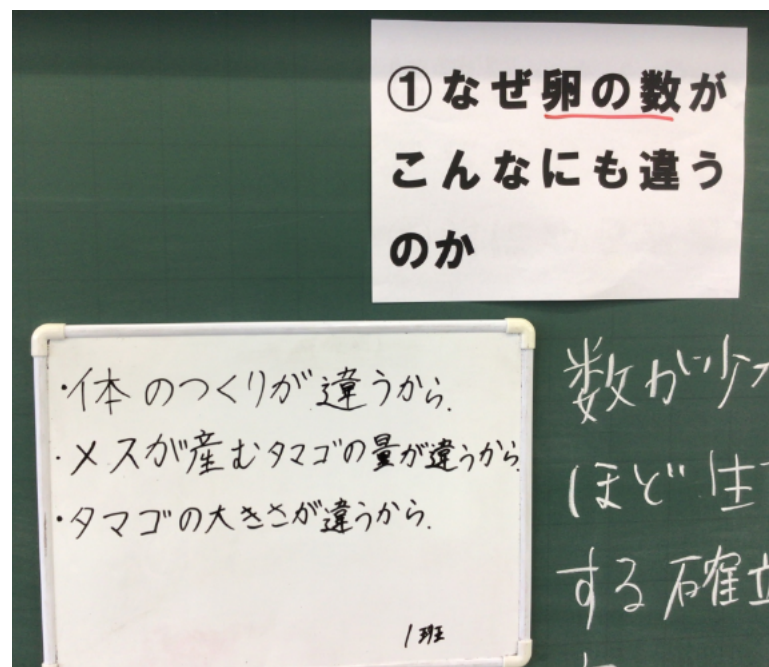 ①なぜ卵の数が
こんなにも違う
のか
・体のつくりが違うから.
・メスが産むタマゴの量が違うから
・タマゴの大きさが違うから.
1班
数が少
ほど生
する確立